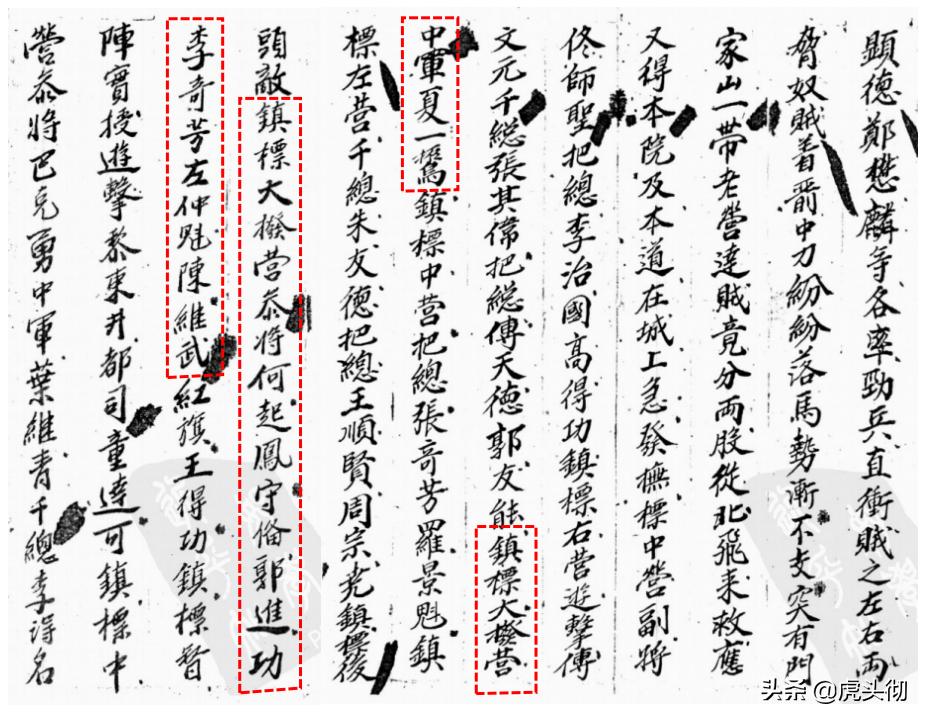 顯德鄭懋麟等各率勁兵直衝賊之左右両
脅奴賊着箭中刀紛紛落馬勢漸不支突有門
家山一帶老營達賊竟分両股從北飛来救應
又得本院及本道在城上急發撫標中營副將
佟師聖把總李治國高得功鎮標右營逰擊傅
文元千総張其偉把総傅天德郭友能鎮標大撥营
中軍夏一鶚鎮標中营把總張奇芳羅景魁鎮
標左营千總朱友德把總王順賢周宗尭鎮標後
頭敵鎮標大撥营叅将何起鳳守俻郭進功
李奇芳左仲魁陳維武紅旗王得功鎮標督
陣實授逰擊黎東井都司童達可鎮標中
營叅將巴克勇中軍葉維青千總李得名
头条 @虎头彻